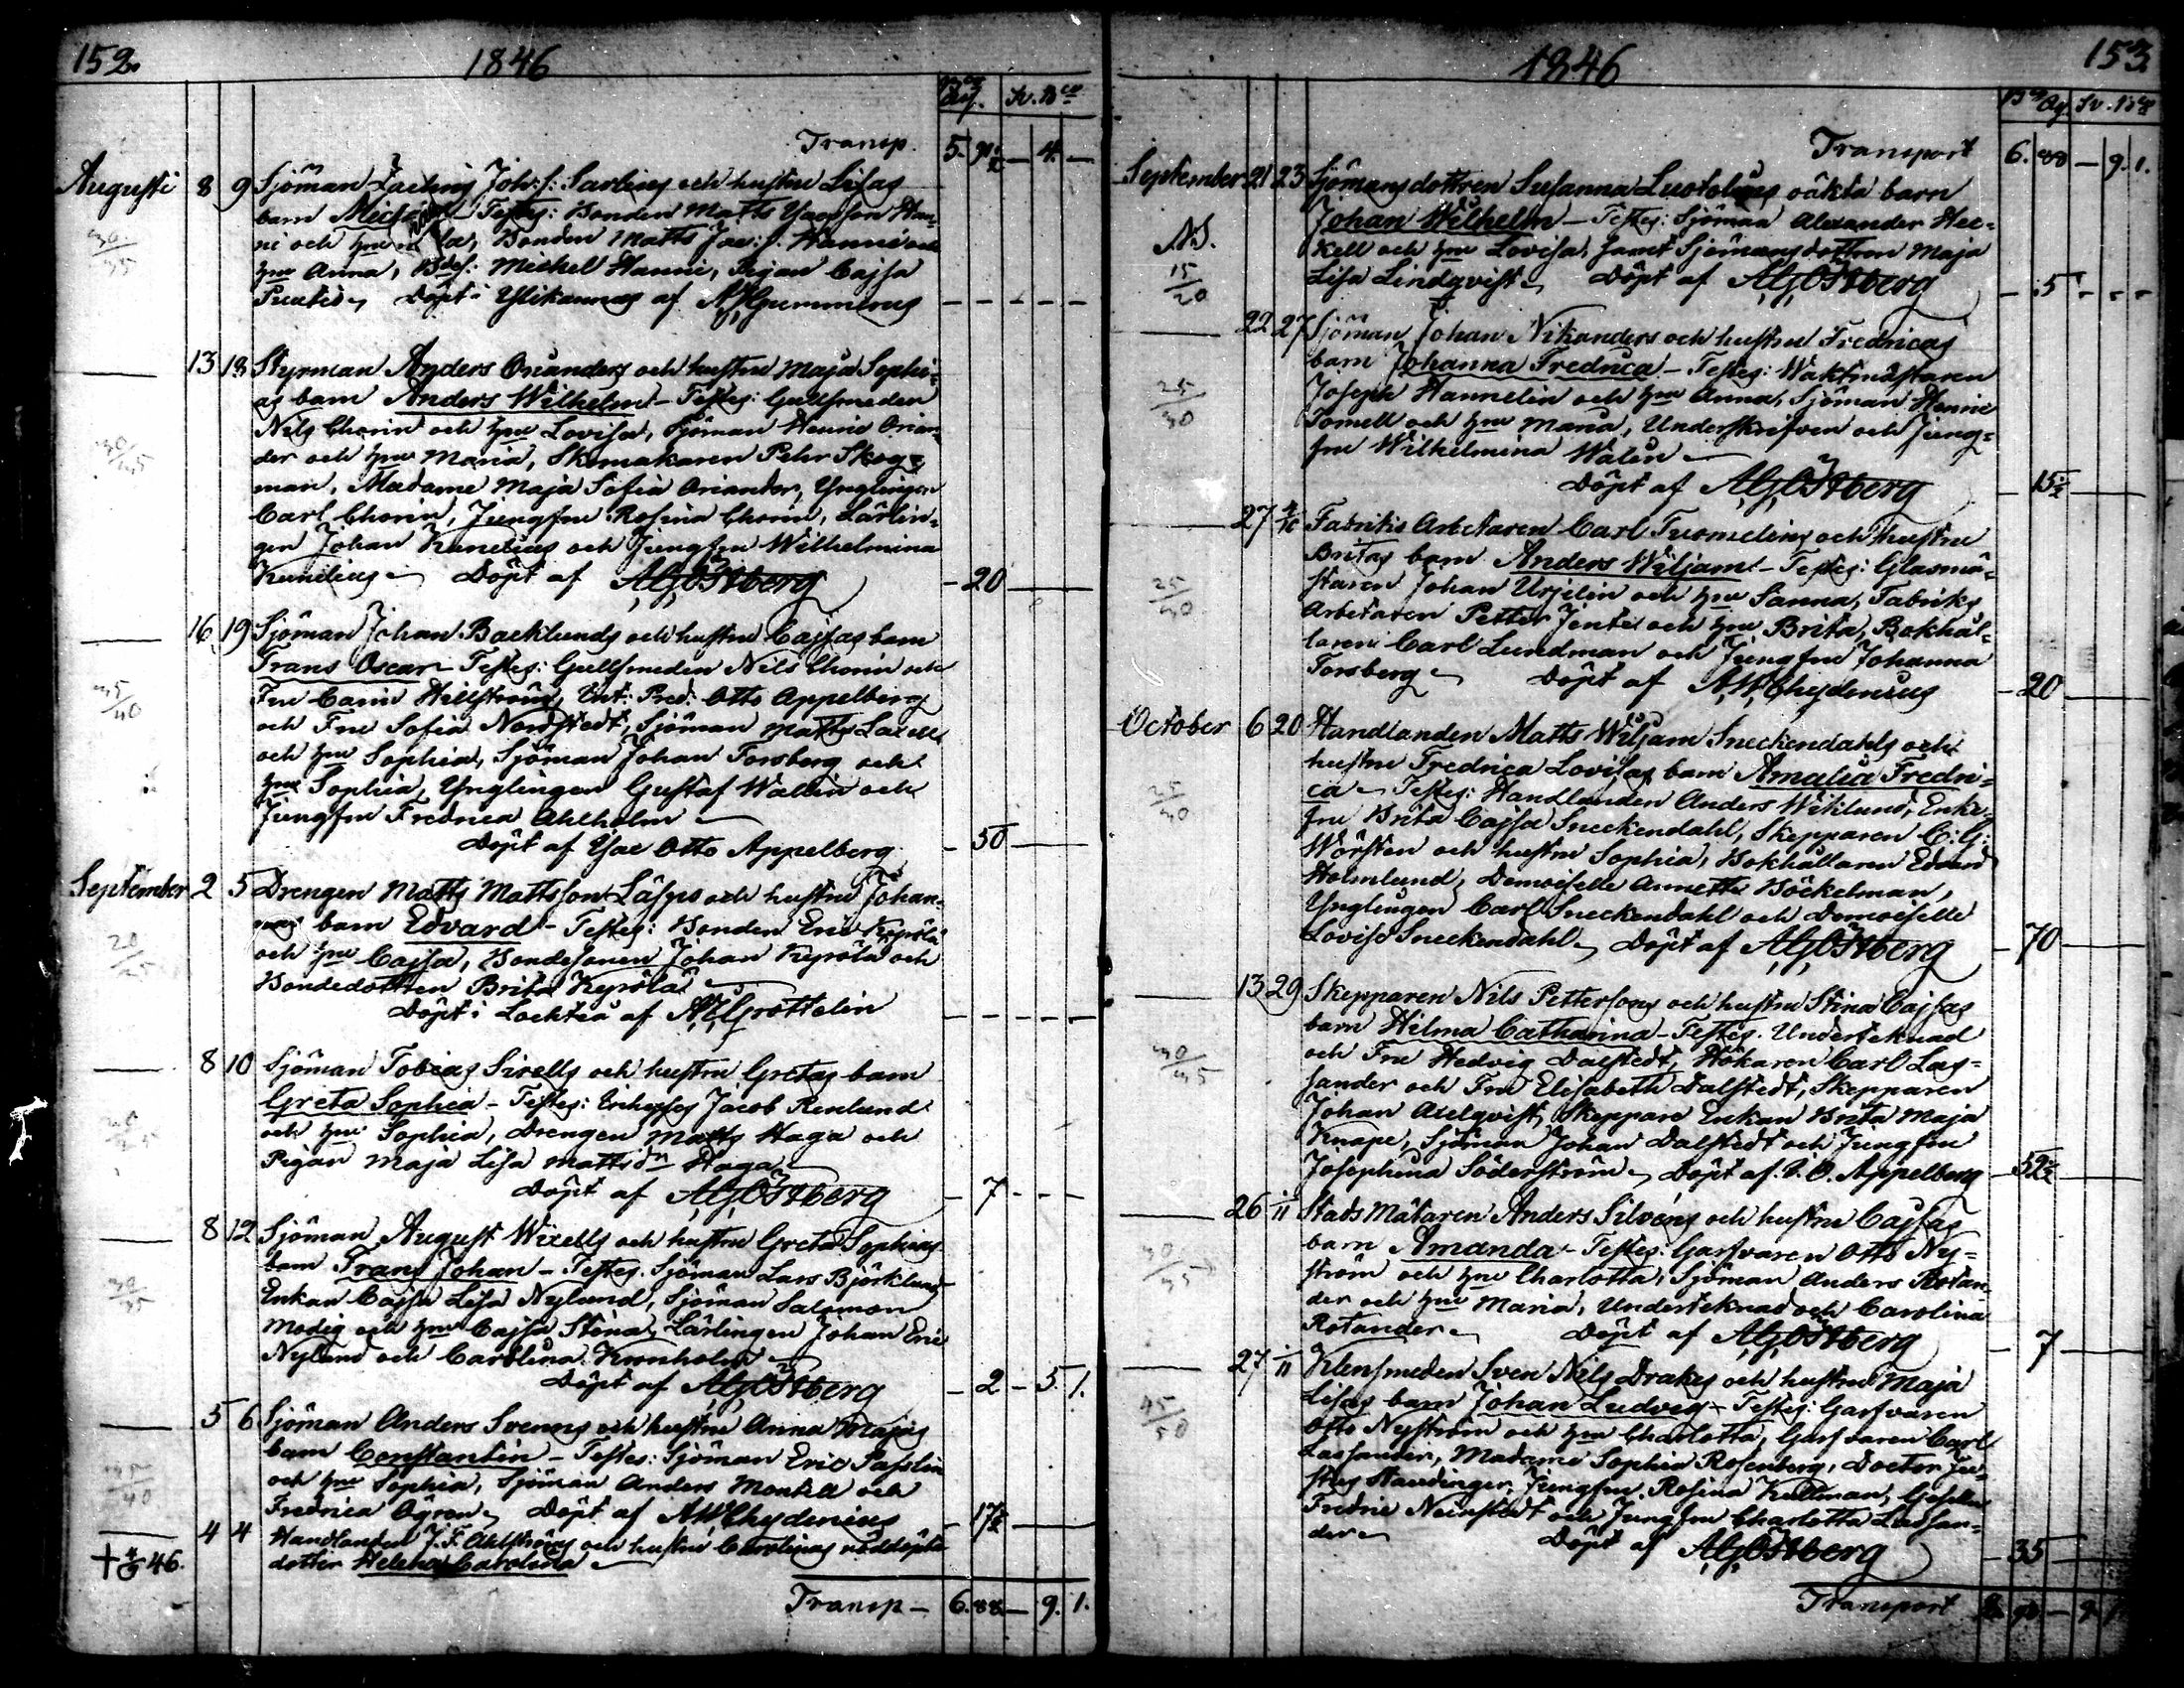 152.
1846
Bco Ass. Sv. Bco
Transp. 5. 90½ — 4. —
Augusti 8 9 Sjöman Zachris Joh:s: Sarlins och hustru Lisas
30/35
barn Mick — Testes: Bonden Matts Han-
ni och hru Bonden Matts Jac:s: Hanni och
hru Anna, Bdes: Michel Hanni, Pigan Cajsa
Döpt i Ylikannus af Gummerus
— 13 18 Styrman Anders Orianders och hustru Maja Sophi-
as barn Anders Wilhelm — Testes: Gullsmeden
30/35
Nils Chorin och hru Lovisa, Sjöman Henric Orian-
der och hru Maria, Skomakaren Pehr Skog-
man, Madame Maja Sofia Oriander, Ynglingen
Carl Chorin, Jungfru Rosina Chorin, Lärlin-
gen Johan Kunelius och Jungfru Wilhelmina
Kunelius — Döpt af AGÖstberg — 20 —
— 16 19 Sjöman Johan Backlunds och hustru Cajsas barn
Frans Oscar — Testes: Gullsmeden Nils Chorin och
35/40
Fru Carin Hellström, Vht: Pred: Otto Appelberg
och Fru Sofia Nordstedt, Sjöman Matts Laxell
och hru Sophia, Sjöman Johan Forsberg och
hru Sophia, Ynglingen Gustaf Wallin och
Jungfru Fredrica Ahlholm —
Döpt af Isac Otto Appelberg — 50 —
September 2 5 Drengen Matts Mattsson Läspes och hustru Johan-
nas barn Edvard — Testes: Bonden Eric Keprolä
20/25
och hru Cajsa, Bondesonen Johan Keprolä och
Bondedottren Brita Keprolä —
Döpt i Lochteå af Grottelin
— 8 10 Sjöman Tobias Sirells och hustru Gretas barn
Greta Sophia — Testes: Enhysses Jacob Renlund
och hru Sophia, Drengen Matts Haga och
Pigan Maja Lisa Mattsdr Haga —
Döpt af AGÖstberg — 7 — —
— 8 12 Sjöman August Wixells och hustru Greta Sophias
barn Frans Johan — Testes: Sjöman Lars Björklund
30/35
Enkan Cajsa Lisa Nylund, Sjöman Salomon
Modig och hru Cajsa Stina, Lärlingen Johan Eric
Nylund och Carolina Kronholm —
Döpt af AGÖstberg — 2 — 5. 1.
— 5 6 Sjöman Anders Svenns och hustru Anna Majas
barn Constantin — Testes: Sjöman Eric Passlin
35/40
och hru Sophia, Sjöman Anders Montell och
Fredrica Ögren — Döpt af AWChydenius — 17½ —
— 4 4 Handlanden J. F. Ahlströms och hustru Carolinas nöddöpta
† 4/9 46. dotter Helena Carolina —
Transp — 6. 88 — 9. 1.
1846
153.
Bco Ass. Sv. Bco
Transport 6. 88 — 9. 1.
September 21 23 Sjömansdottren Susanna Luotolas oäkta barn
Johan Wilhelm — Testes: Sjöman Alexander Hec-
NS.
kell och hru Lovisa, samt Sjömansdottren Maja
15/20
Lisa Lindqvist — Döpt af AGÖstberg — 5 — — —
— 22 27 Sjöman Johan Nikanders och hustru Fredricas
barn Johanna Fredrica — Testes: Waktmästaren
25/30
Joseph Hannelin och hru Anna, Sjöman Henric
Tornell och hru Maria, Underskrifven och Jung-
fru Wilhelmina Walin —
Döpt af AGÖstberg — 15½
— 27 4/10 Fabriks Arbetaren Carl Tuomelins och hustru
Britas barn Anders Wiljam — Testes: Glasmä-
25/30
staren Johan Ursilin och hru Sanna, Fabriks
Arbetaren Petter Jente och hru Brita, Bokhål-
laren Carl Lundman och Jungfru Johanna
Forsberg — Döpt af AWChydenius — 20 —
October 6 20 Handlanden Matts Wiljam Sneckendahls och
hustru Fredrica Lovisas barn Amalia Fredri-
25/30
ca — Testes: Handlanden Anders Wiklund, Enke-
fru Brita Cajsa Sneckendahl, Skepparen C: G:
Wörsten och hustru Sophia, Bokhållaren Edvard
Holmlund, Demoiselle Annette Böckelman,
Ynglingen Carl Sneckendahl och Demoiselle
Lovisa Sneckendahl — Döpt af AGÖstberg — 70 —
— 13 29 Skepparen Nils Pettersons och hustru Stina Cajsas
barn Hilma Catharina — Testes: Underteknad
30/35
och Fru Hedvig Dalstedt, Hökaren Carl Las-
sander och Fru Elisabeth Dalstedt, Skepparen
Johan Axelqvist, Skeppare Enkan Brita Maja
Knape, Sjöman Johan Dalstedt och Jungfru
Josephina Söderström — Döpt af I. O. Appelberg — 52½
— 26 1/11 Stads Mätaren Anders Silvéns och hustru Cajsas
barn Amanda — Testes: Garfvaren Otto Ny-
30/35
ström och hru Charlotta, Sjöman Anders Rotan-
der och hru Maria, Underteknad och Carolina
Rotander — Döpt af AGÖstberg — 7 —
— 27 1/11 Klensmeden Sven Nils Drakes och hustru Maja
Lisas barn Johan Ludvig — Testes: Garfvaren
45/50
Otto Nyström och hru Charlotta, Garfvaren Carl
Lassander, Madame Sophia Rosenberg, Doctor Ju-
stus Staudinger, Jungfru Rosina Kullman, Gesellen
Fredric Neinstedt och Jungfru Charlotta Lassan-
der — Döpt af AGÖstberg — 35 —
Transport